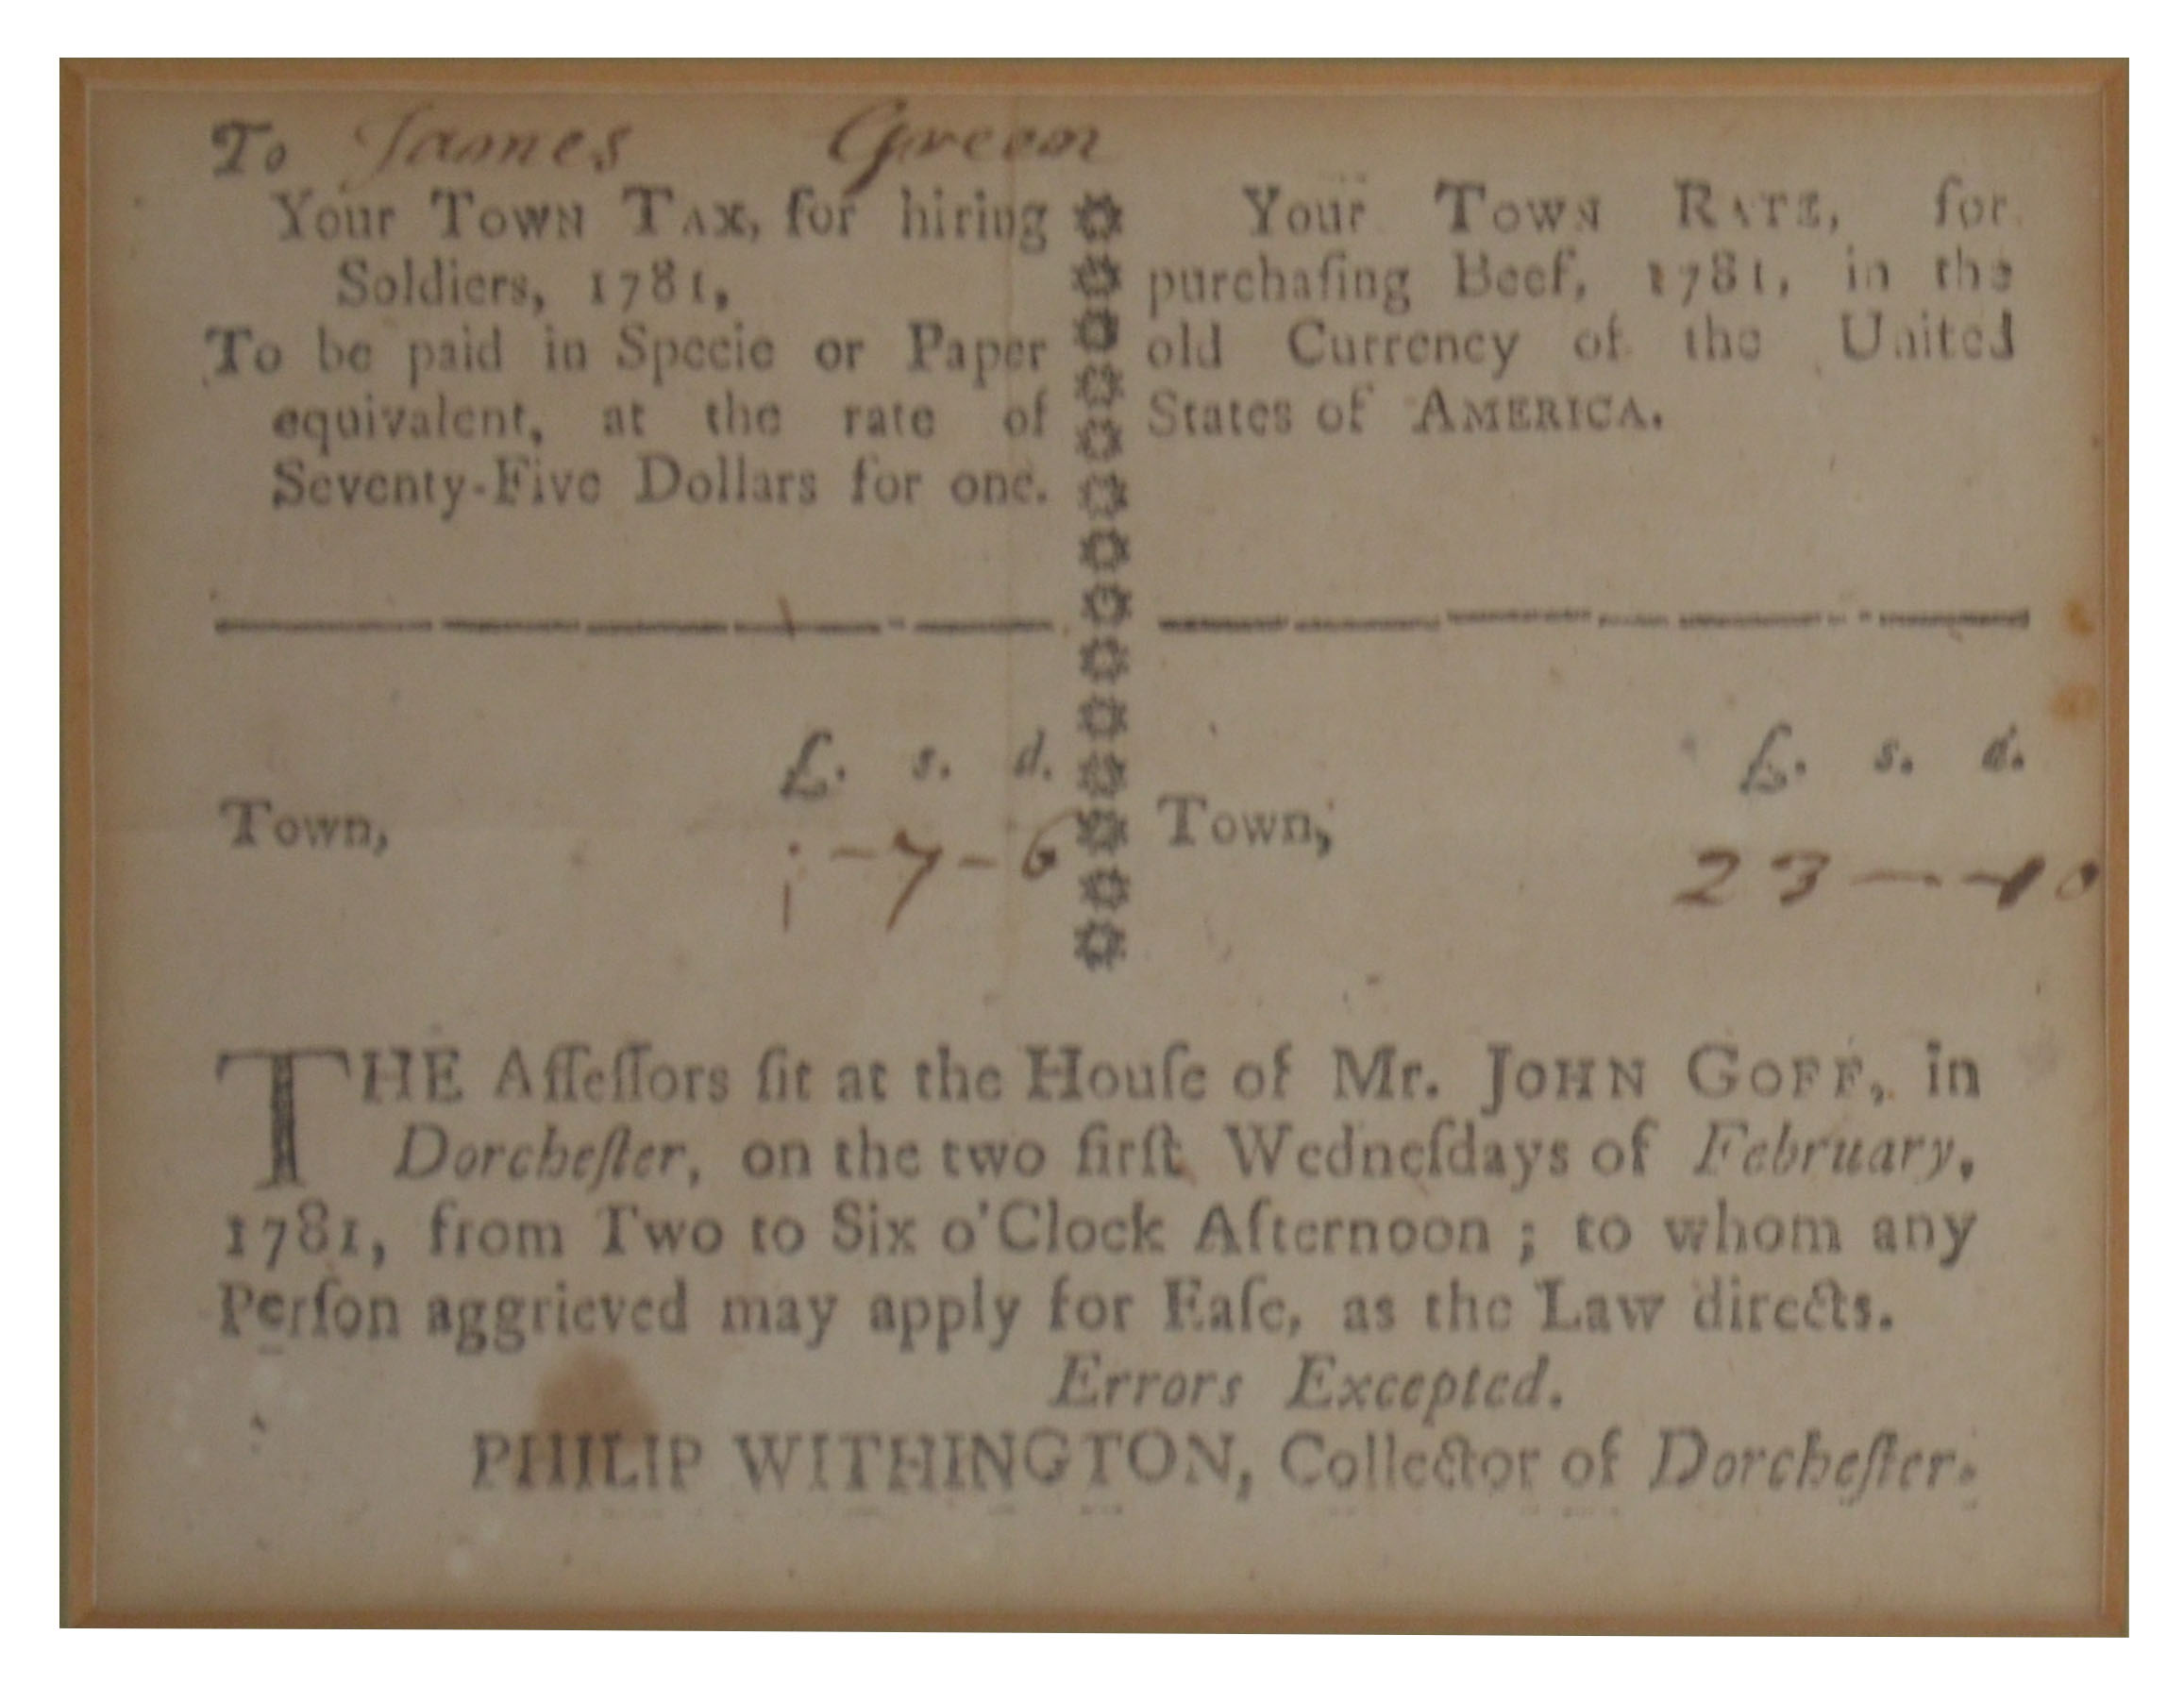 To James Green
Your TOWN TAX, for hiring
Soldiers, 1781,
To be paid in Specie or Paper
equivalent, at the rate of
Seventy-Five Dollars for one.
£. s. d.
Town,
1-7-6
Your TOWN RATE, for
purchaſing Beef, 1781, in the
old Currency of the United
States of AMERICA.
£. s. d.
Town,
23 — — 10
THE Aſſeſſors ſit at the Houſe of Mr. JOHN GOFF, in
Dorcheſter, on the two firſt Wedneſdays of February,
1781, from Two to Six o'Clock Afternoon ; to whom any
Perſon aggrieved may apply for Eaſe, as the Law directs.
Errors Excepted.
PHILIP WITHINGTON, Collector of Dorcheſter.